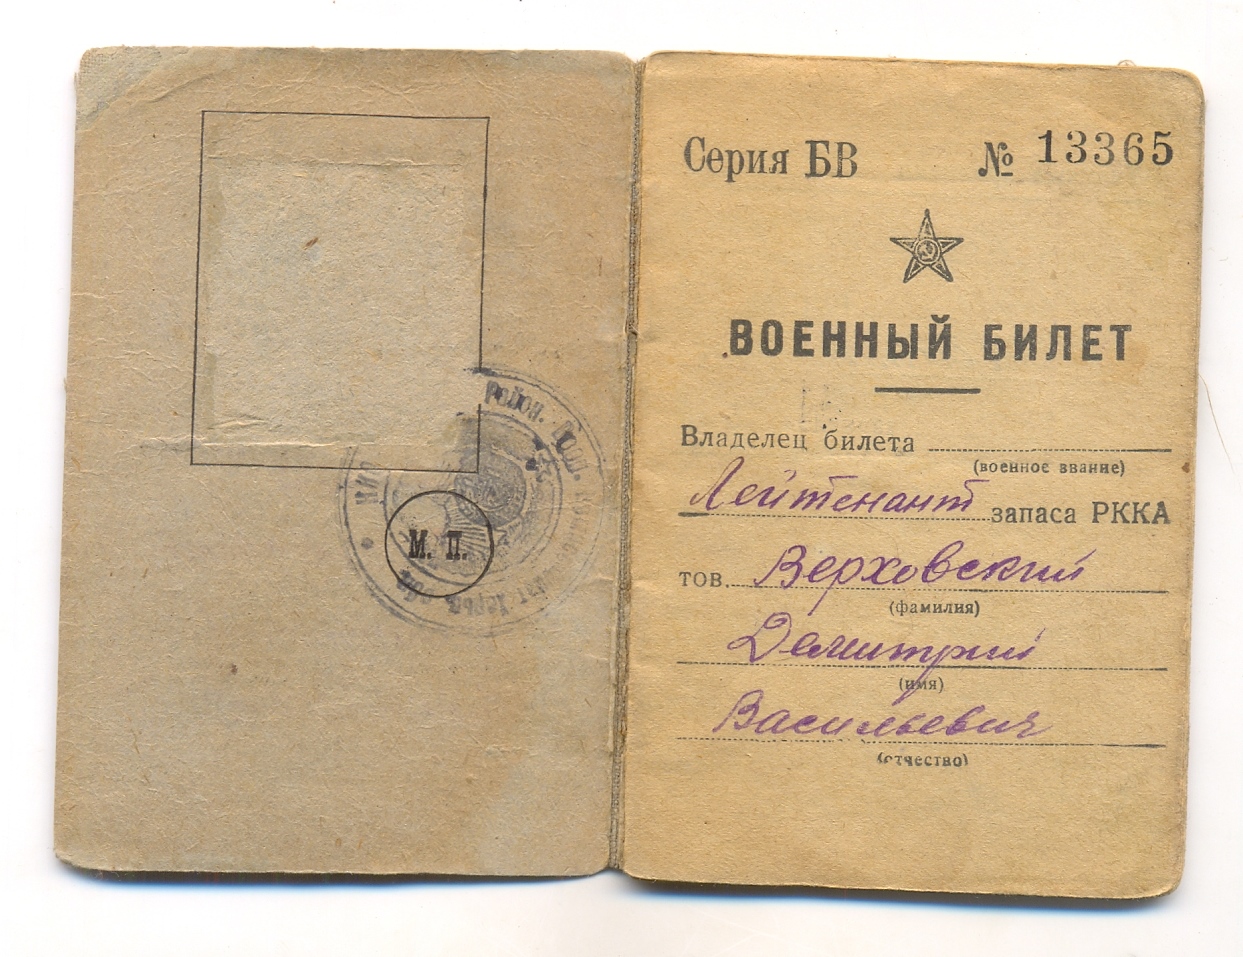 М. П.
Район.
Серия БВ № 13365
ВОЕННЫЙ БИЛЕТ
Владелец билета
(военное звание)
Лейтенант запаса РККА
тов. Верховский
(фамилия)
Демитрий
(имя)
Васильевич
(отчество)